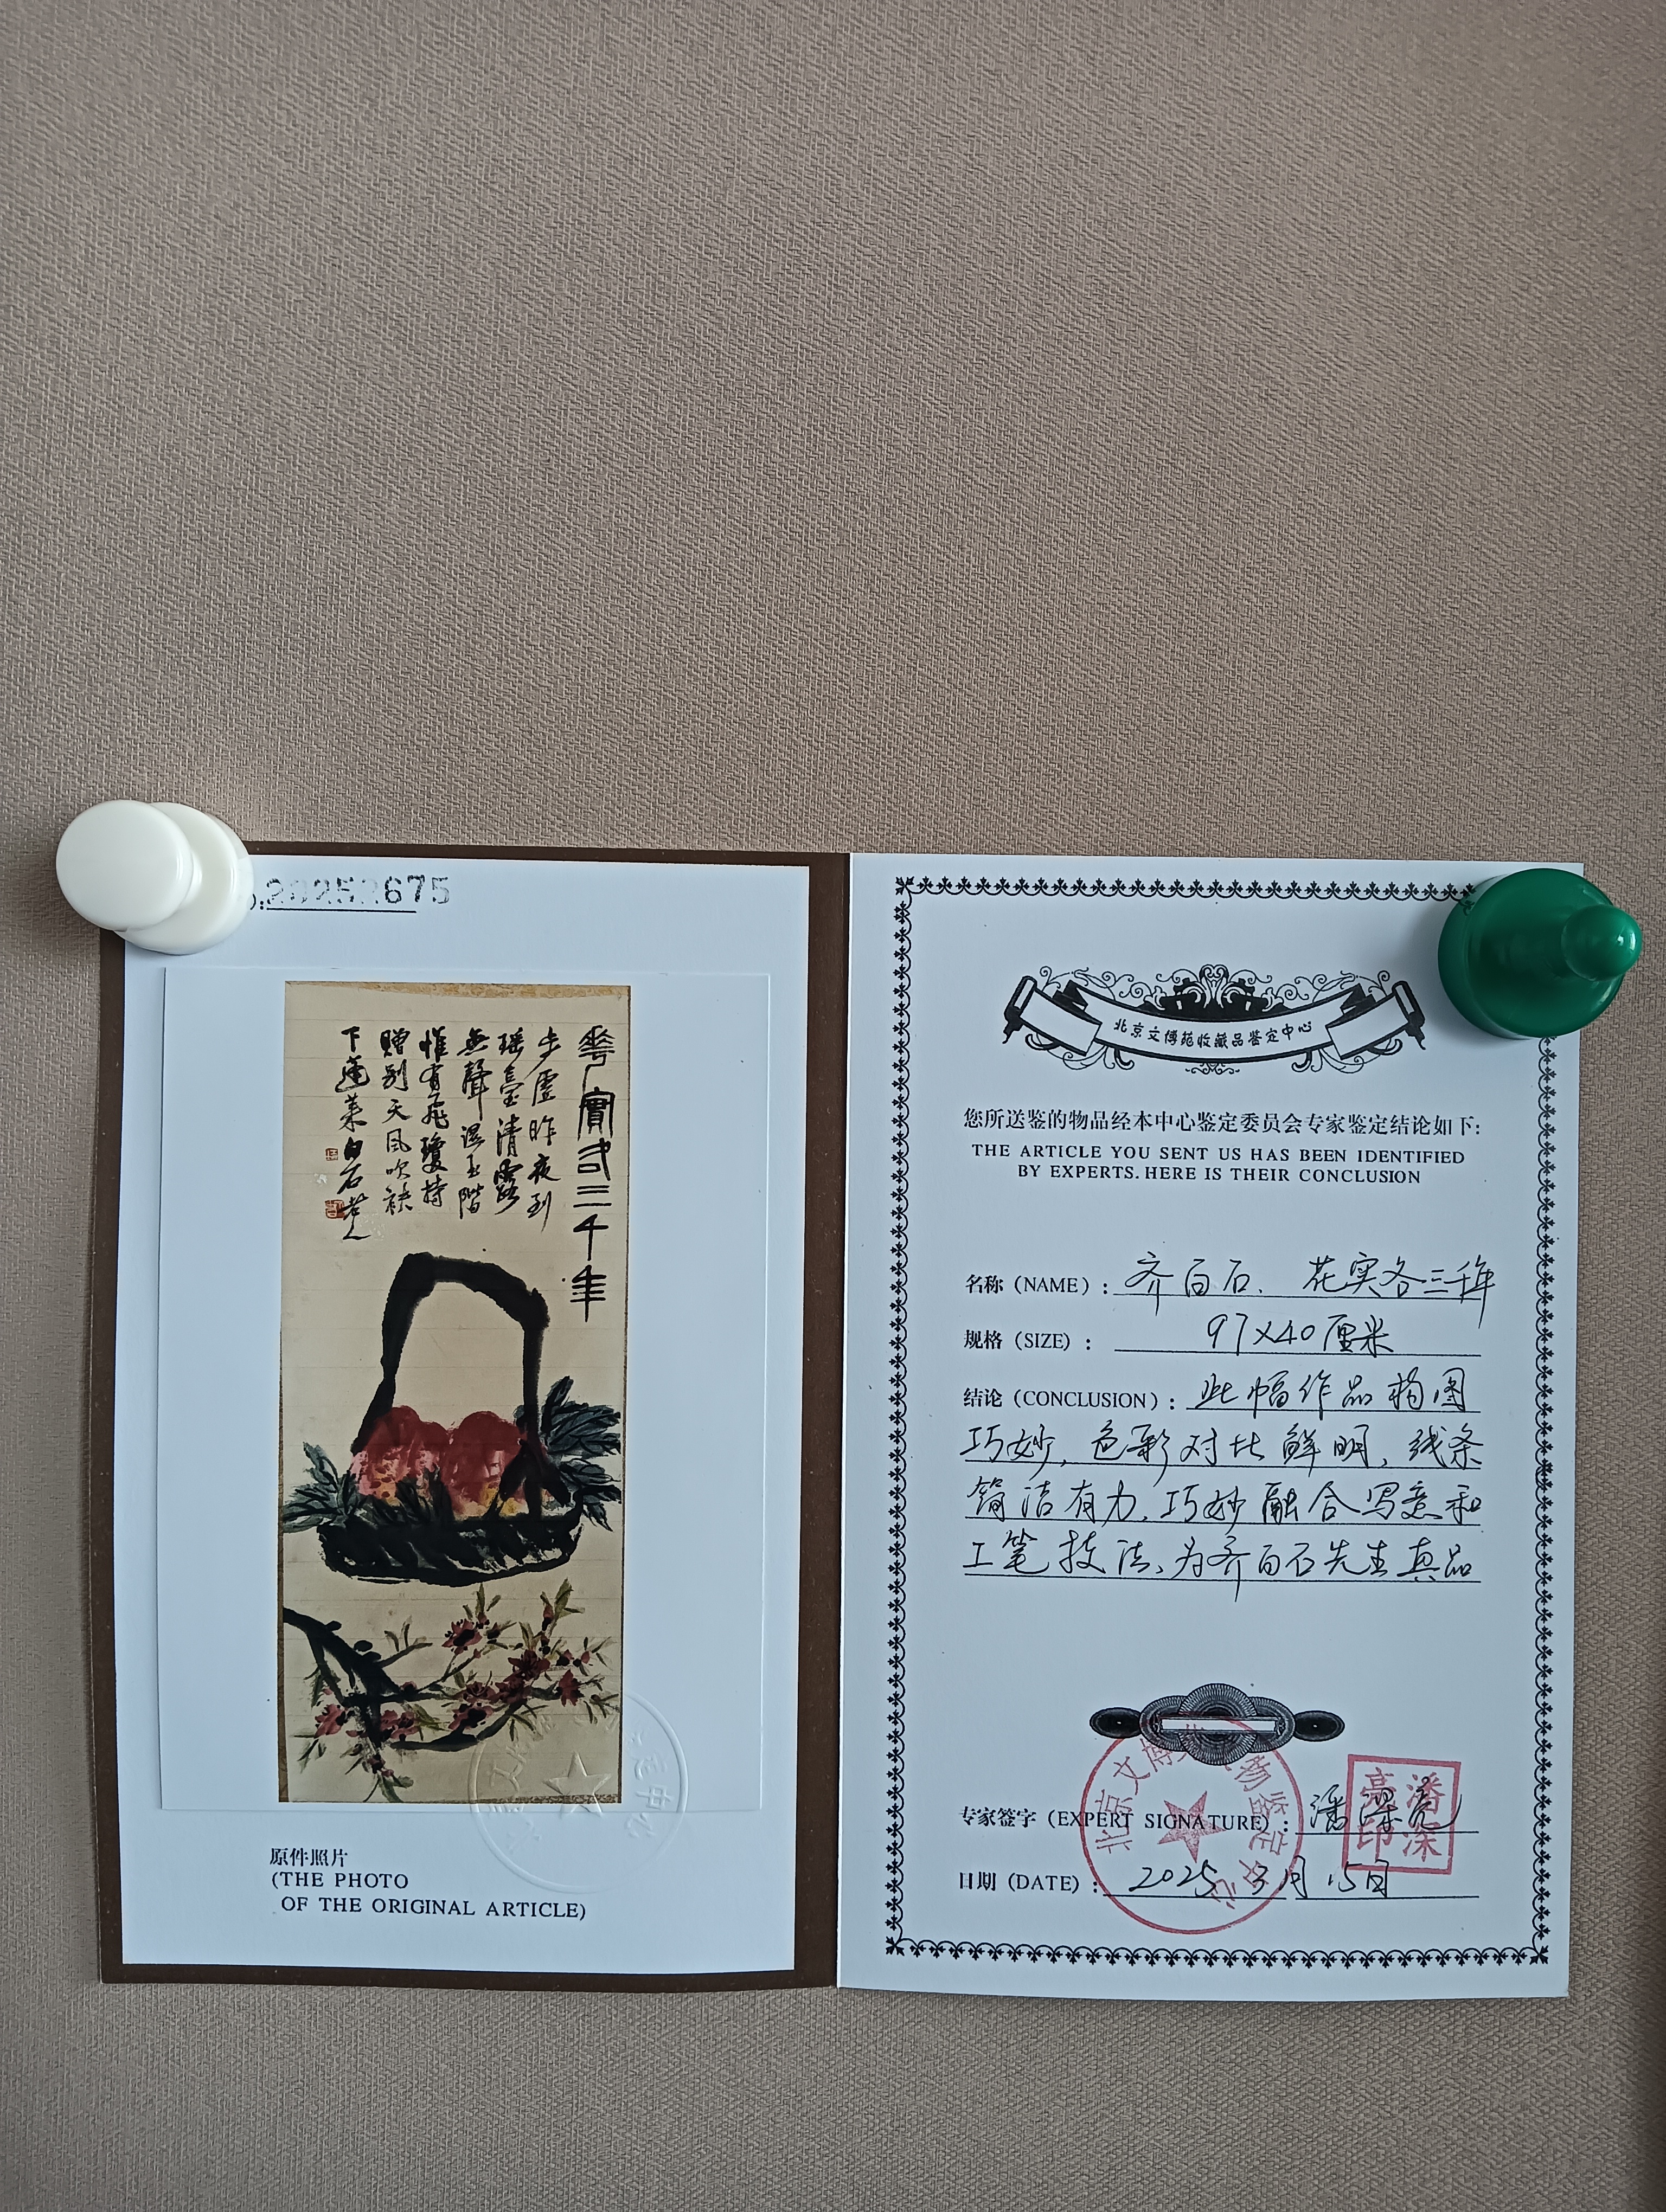 20252675
華實各三千年
步虛昨夜到
瑶臺清露
無聲濕玉階
惟有飛瓊持
贈別天風吹袂
下蓬萊白石老人
原件照片
(THE PHOTO
OF THE ORIGINAL ARTICLE)
北京文博苑收藏品鉴定中心
您所送鉴的物品经本中心鉴定委员会专家鉴定结论如下:
THE ARTICLE YOU SENT US HAS BEEN IDENTIFIED
BY EXPERTS. HERE IS THEIR CONCLUSION
名称(NAME):齐白石、花实各三千年
规格(SIZE):97×40厘米
结论(CONCLUSION):此幅作品构图
巧妙,色彩对比鲜明,线条
简洁有力,巧妙融合写意和
工笔技法、为齐白石先生真品
专家签字(EXPERT SIGNATURE):潘深亮
潘深亮印
日期(DATE):2025 3月15日